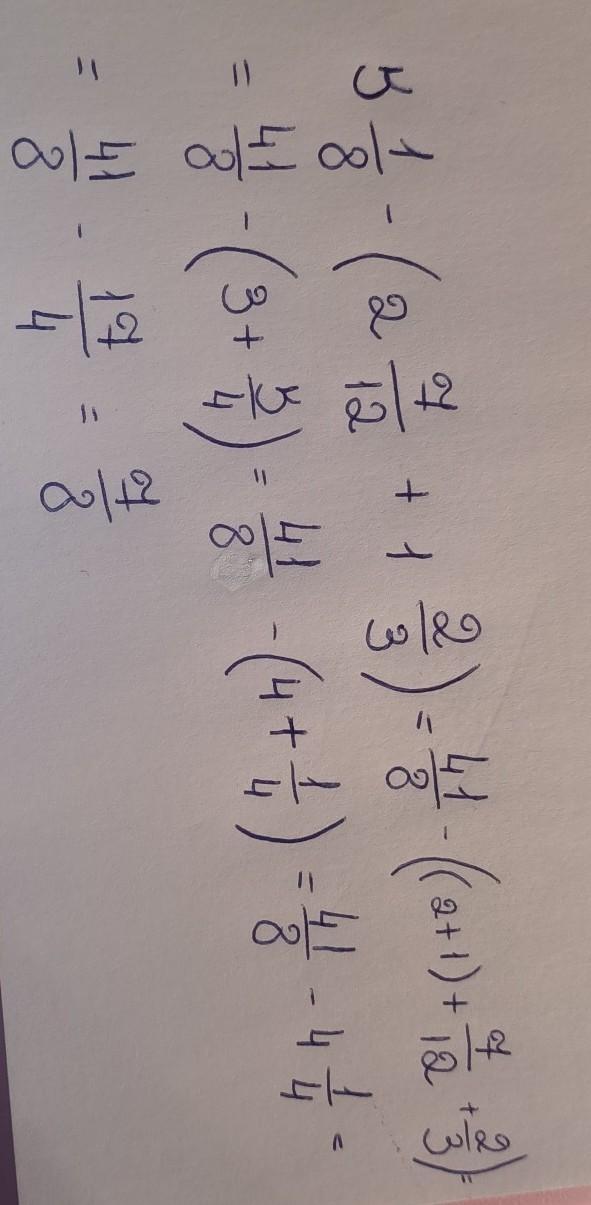 5 1/8 - (2 7/12 + 1 2/3) = 41/8 - ((2+1) + 7/12 + 2/3) =
= 41/8 - (3 + 5/4) = 41/8 - (4 + 1/4) = 41/8 - 4 1/4 =
= 41/8 - 17/4 = 7/8